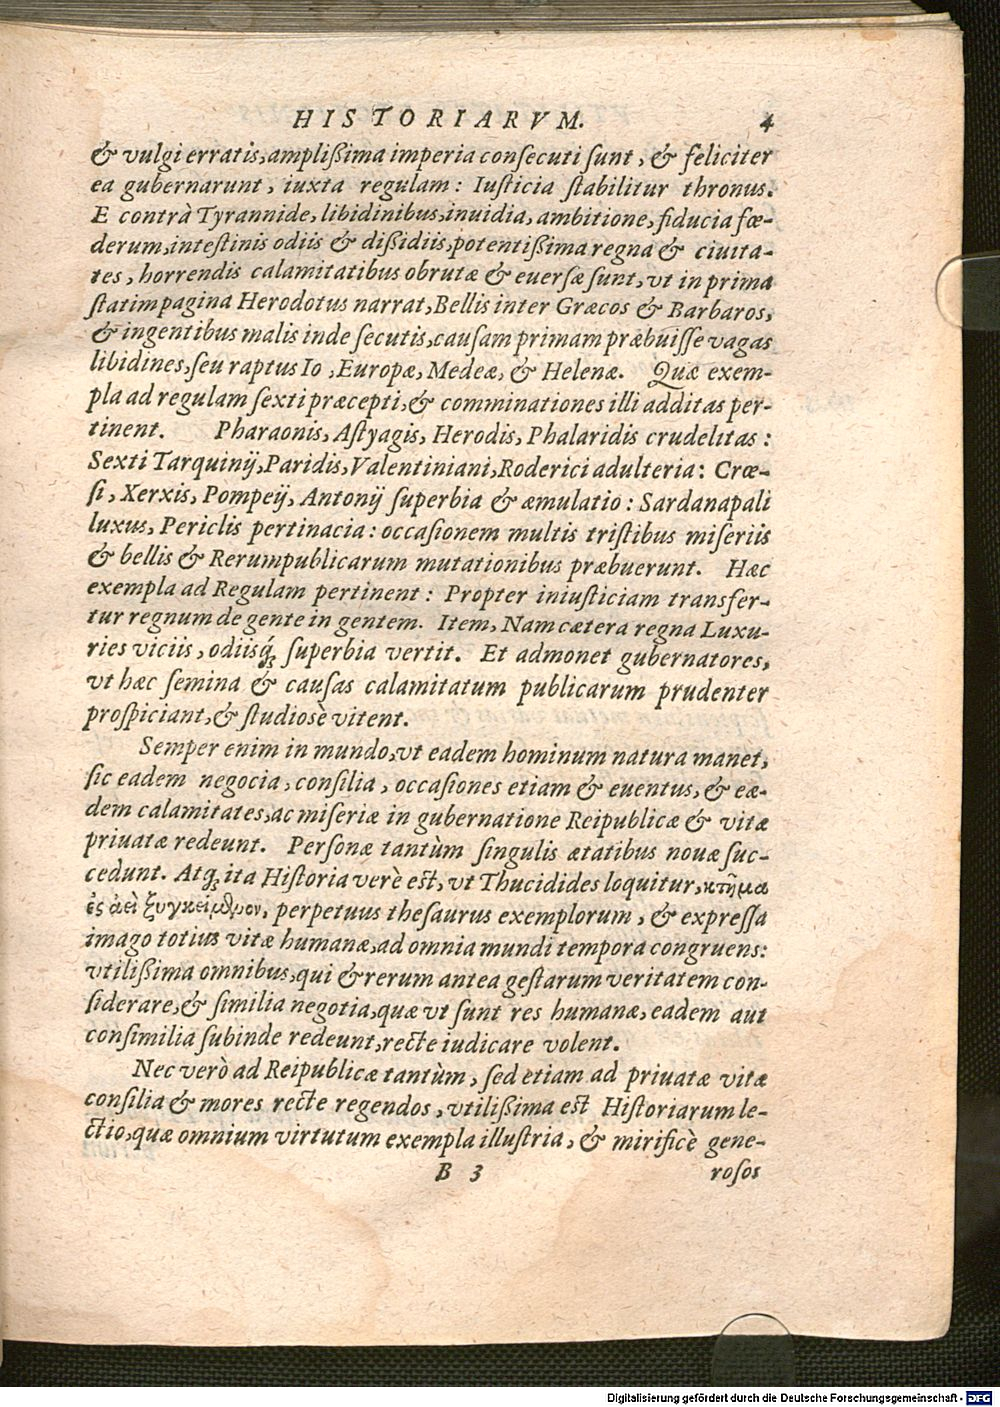 HISTORIARVM. 4
& vulgi erratis, amplißima imperia consecuti sunt, & feliciter
ea gubernarunt, iuxta regulam: Iusticia stabilitur thronus.
E contrà Tyrannide, libidinibus, inuidia, ambitione, fiducia fœ-
derum, intestinis odiis & dißidiis, potentißima regna & ciuita-
tes, horrendis calamitatibus obrutæ & euersæ sunt, vt in prima
statim pagina Herodotus narrat, Bellis inter Græcos & Barbaros,
& ingentibus malis inde secutis, causam primam præbuisse vagas
libidines, seu raptus Io, Europæ, Medeæ, & Helenæ. Quæ exem-
pla ad regulam sexti præcepti, & comminationes illi additas per-
tinent. Pharaonis, Astyagis, Herodis, Phalaridis crudelitas:
Sexti Tarquinij, Paridis, Valentiniani, Roderici adulteria: Crœ-
si, Xerxis, Pompeij, Antonij superbia & æmulatio: Sardanapali
luxus, Periclis pertinacia: occasionem multis tristibus miseriis
& bellis & Rerumpublicarum mutationibus præbuerunt. Hæc
exempla ad Regulam pertinent: Propter iniusticiam transfer-
tur regnum de gente in gentem. Item, Nam cætera regna Luxu-
ries viciis, odiisq́; superbia vertit. Et admonet gubernatores,
vt hæc semina & causas calamitatum publicarum prudenter
prospiciant, & studiosè vitent.
Semper enim in mundo, vt eadem hominum natura manet,
sic eadem negocia, consilia, occasiones etiam & euentus, & eæ-
dem calamitates, ac miseriæ in gubernatione Reipublicæ & vitæ
priuatæ redeunt. Personæ tantùm singulis ætatibus nouæ suc-
cedunt. Atq; ita Historia verè est, vt Thucidides loquitur, κτῆμα
ἐς ἀεὶ ξυγκείμενον, perpetuus thesaurus exemplorum, & expressa
imago totius vitæ humanæ, ad omnia mundi tempora congruens:
vtilißima omnibus, qui & rerum antea gestarum veritatem con-
siderare, & similia negotia, quæ vt sunt res humanæ, eadem aut
consimilia subinde redeunt, recte iudicare volent.
Nec verò ad Reipublicæ tantùm, sed etiam ad priuatæ vitæ
consilia & mores recte regendos, vtilißima est Historiarum le-
ctio, quæ omnium virtutum exempla illustria, & mirificè gene-
B 3 rosos
Digitalisierung gefördert durch die Deutsche Forschungsgemeinschaft - DFG